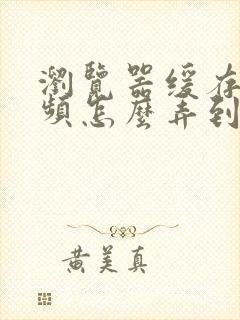 瀏覽器緩存
頻怎麼弄到
黄美真